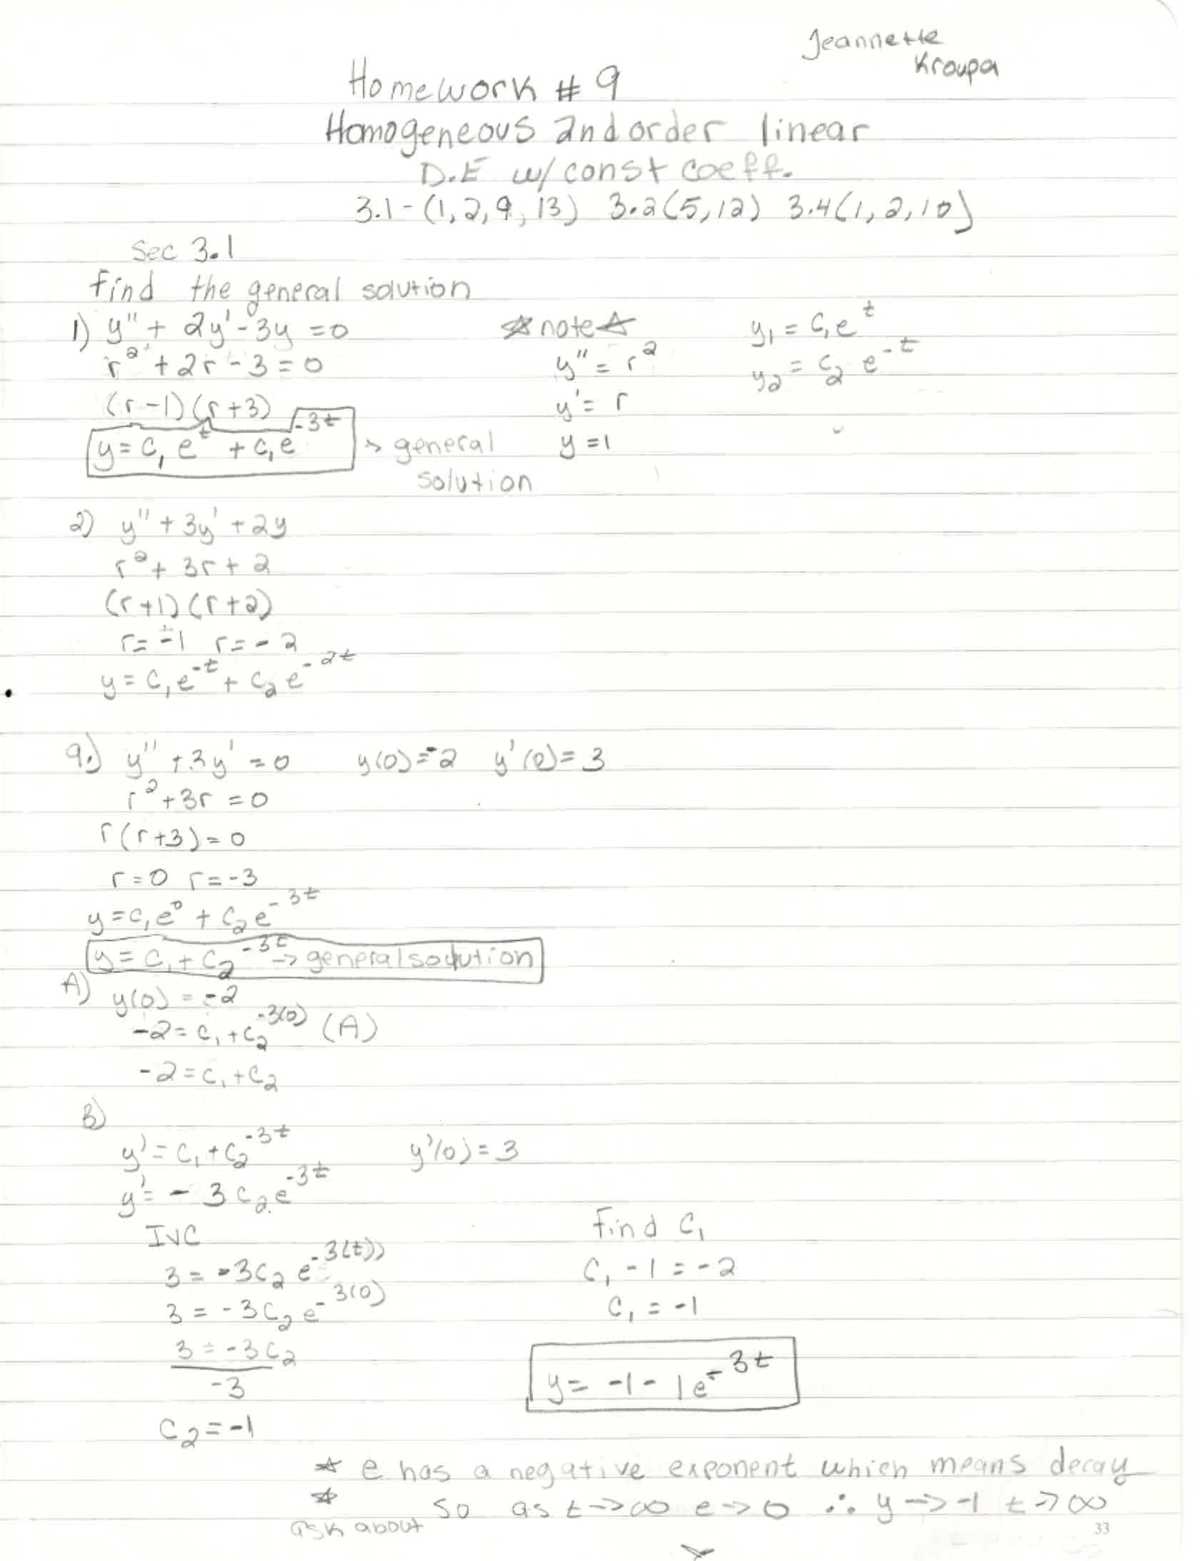 Jeannette
Kroupa
Homework # 9
Homogeneous 2nd order linear
D.E w/ const coeff.
3.1-(1,2,9,13) 3.2(5,12) 3.4(1,2,10)
Sec 3.1
Find the general solution
1) y'' + 2y' - 3y = 0
r² + 2r - 3 = 0
(r-1)(r+3)
y = c₁e^t + c₁e^-3t → general
solution
☆note☆
y'' = r²
y' = r
y = 1
y₁ = c₁e^t
y₂ = c₂ e^-t
2) y'' + 3y' + 2y
r² + 3r + 2
(r+1)(r+2)
r = -1 r = -2
y = c₁e^-t + c₂e^-2t
9.) y'' + 3y' = 0 y(0) = -2 y'(0) = 3
r² + 3r = 0
r(r+3) = 0
r = 0 r = -3
y = c₁e⁰ + c₂e^-3t
y = c₁ + c₂^-3t → general solution
A) y(0) = -2
-2 = c₁ + c₂^-3(0) (A)
-2 = c₁ + c₂
B)
y' = c₁ + c₂^-3t y'(0) = 3
y' = -3c₂e^-3t
IVC
3 = -3c₂ e^-3(t))
3 = -3c₂e^-3(0)
3 = -3c₂
-3
c₂ = -1
Find c₁
c₁ - 1 = -2
c₁ = -1
y = -1 - 1e^-3t
☆ e has a negative exponent which means decay
☆ so as t → ∞ e → 0 ∴ y → -1 t → ∞
ask about
33